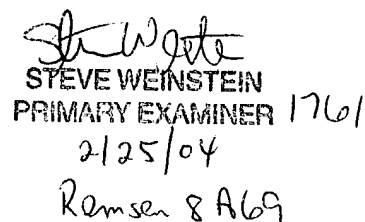 STEVE WEINSTEIN
PRIMARY EXAMINER 1761
2/25/04
Remsen 8A69